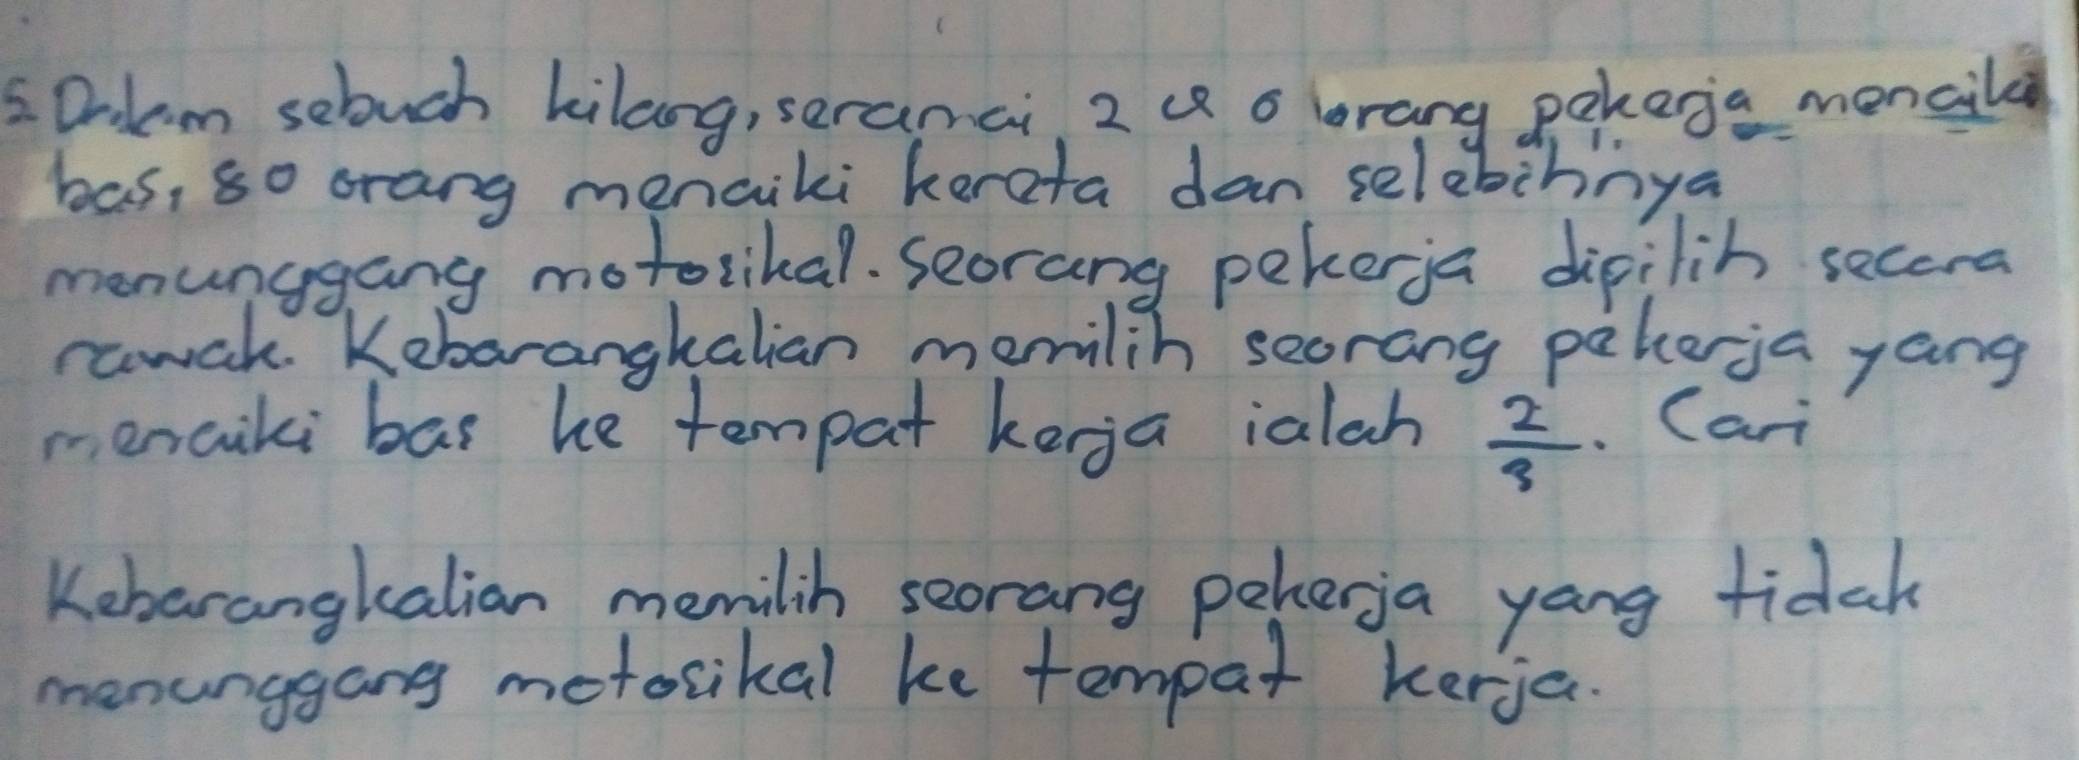 5. Dalam sebuah kilang, seramai 240 orang pekerja menaiki
bas, 80 orang menaiki kereta dan selebihnya
menunggang motosikal. Seorang pekerja dipilih secara
rawak. Kebarangkalian memilih seorang pekerja yang
menaiki bas ke tempat kerja ialah 2/3. Cari
Kebarangkalian memilih seorang pekerja yang tidak
menunggang motosikal ke tempat kerja.